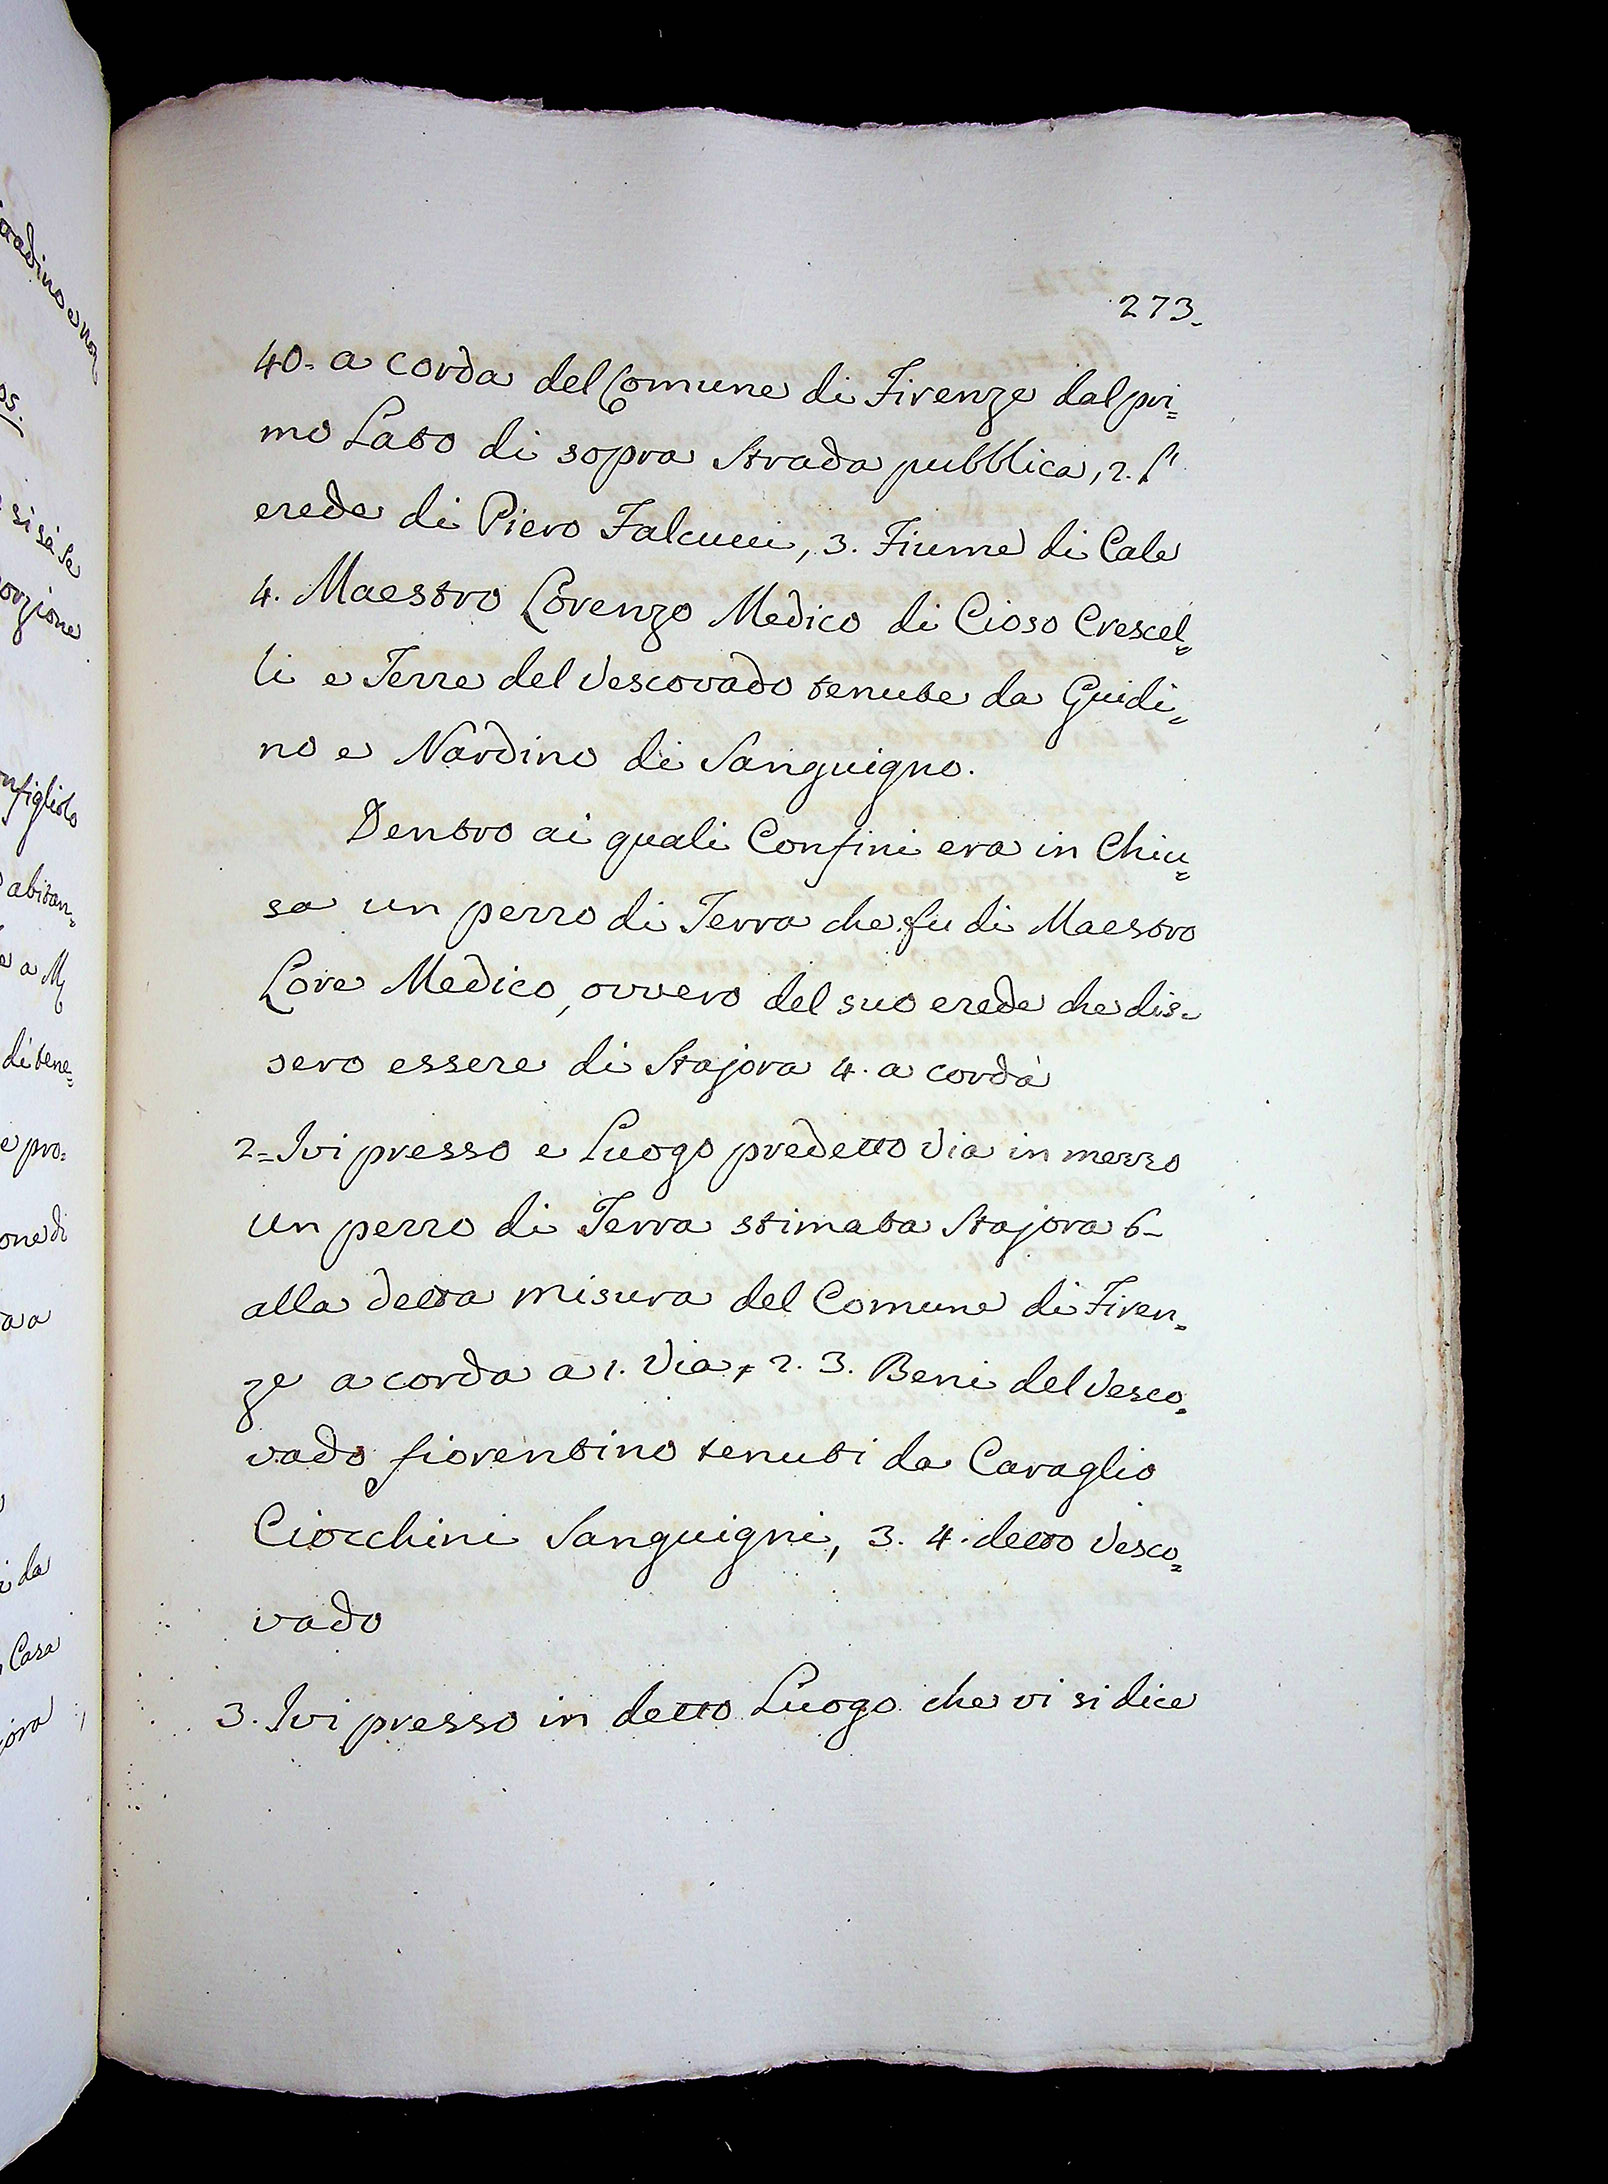 273.
40. a corda del Comune di Firenze dal pri=
mo Lato di sopra Strada pubblica, 2. l'
erede di Piero Falcucci, 3. Fiume di Cale
4. Maestro Lorenzo Medico di Cioso Crescel=
li e Terre del Vescovado tenute da Guidi=
no e Nardino di Sanguigno.
Dentro ai quali Confini era in Chiu=
sa un pezzo di Terra che fu di Maestro
Lore Medico, ovvero del suo erede che dis=
sero essere di Stajora 4. a corda
2= Ivi presso e Luogo predetto Via in mezzo
un pezzo di Terra stimata Stajora 6-
alla detta misura del Comune di Firen=
ze a corda a 1. Via, 2. 3. Beni del Vesco=
vado fiorentino tenuti da Caraglio
Ciocchini Sanguigni, 3. 4. detto Vesco=
vado
3. Ivi presso in detto Luogo che vi si dice